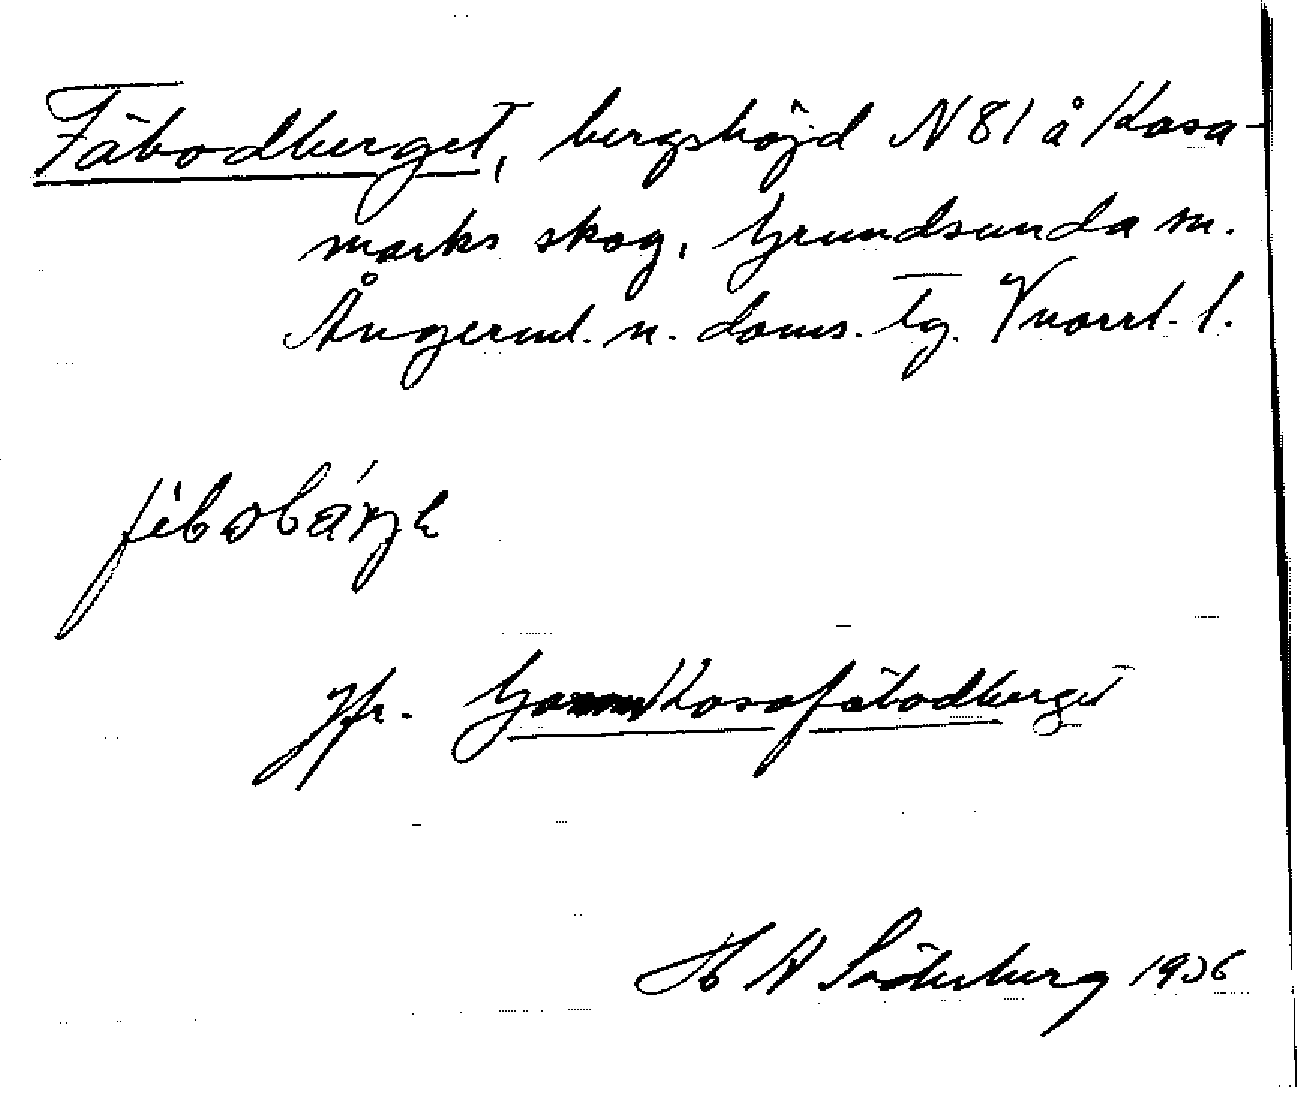 Fäbodberget, bergshöjd N 81 å Kasa-
marks skog, Grundsunda sn.
Ångerml. n. doms. tg. Vnorrl. l.
Jfr. Kasafäbodberget
H A Söderberg 1936